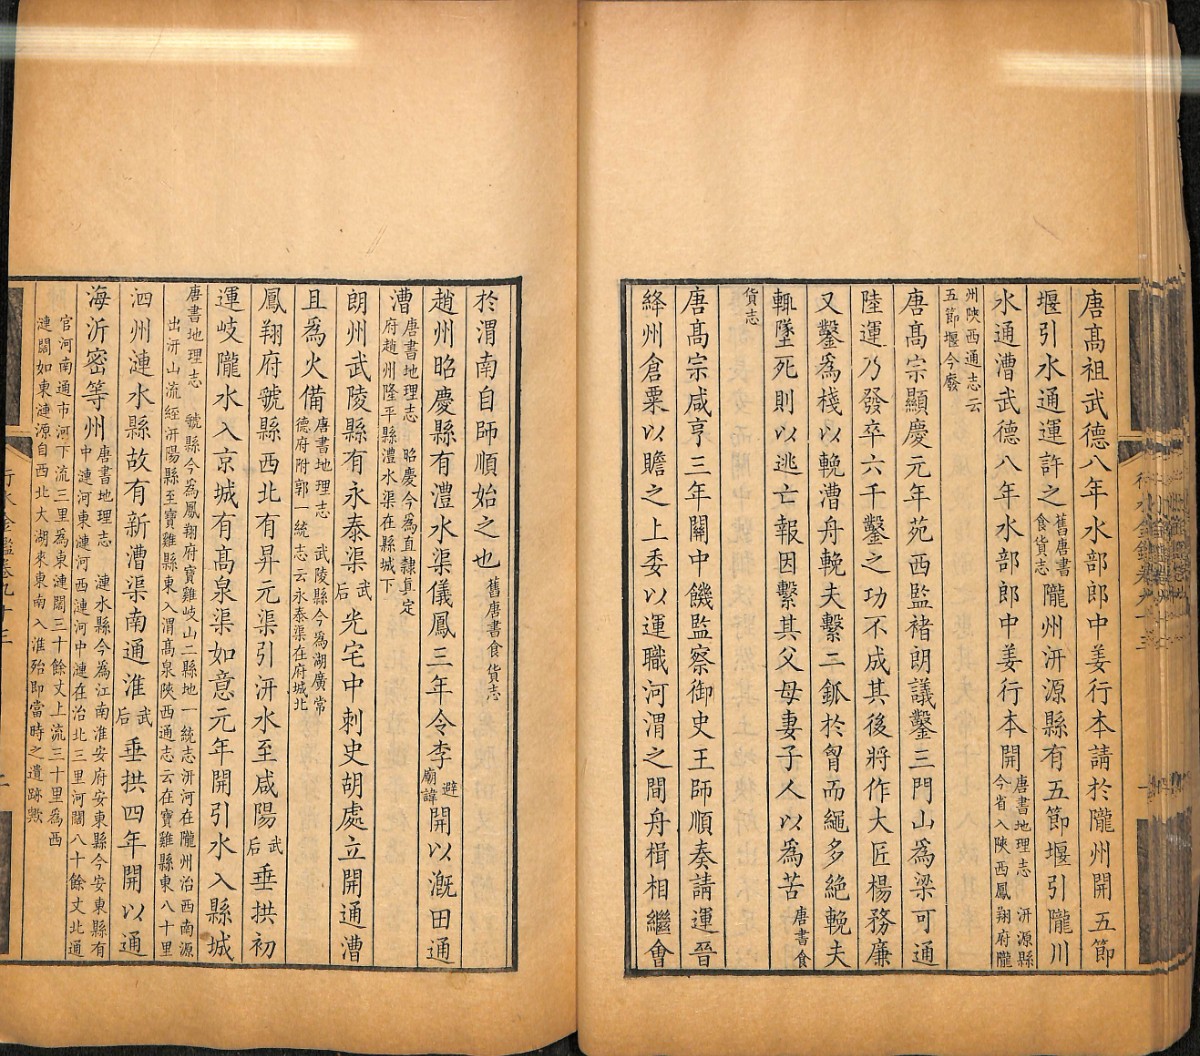 唐髙祖武德八年水部郎中姜行本請於隴州開五節
堰引水通運許之舊唐書食貨志隴州汧源縣有五節堰引隴川
水通漕武德八年水部郎中姜行本開唐書地理志 汧源縣今省入陜西鳳翔府隴
州陜西通志云五節堰今廢
唐髙宗顯慶元年苑西監褚朗議鑿三門山為梁可通
陸運乃發卒六千鑿之功不成其後將作大匠楊務廉
又鑿為棧以輓漕舟輓夫繫二鈲於胷而繩多絶輓夫
輒墜死則以逃亡報因繫其父母妻子人以為苦唐書食
貨志
唐髙宗咸亨三年關中饑監察御史王師順奏請運晉
絳州倉粟以贍之上委以運職河渭之間舟楫相繼會
於渭南自師順始之也舊唐書食貨志
趙州昭慶縣有澧水渠儀鳳三年令李避廟諱開以溉田通
漕唐書地理志 昭慶今為直隷真定府趙州隆平縣澧水渠在縣城下
朗州武陵縣有永泰渠武后光宅中刺史胡處立開通漕
且為火備唐書地理志 武陵縣今為湖廣常德府附郭一統志云永泰渠在府城北
鳳翔府虢縣西北有昇元渠引汧水至咸陽武后垂拱初
運岐隴水入京城有髙泉渠如意元年開引水入縣城
唐書地理志 虢縣今為鳳翔府寶雞岐山二縣地一統志汧河在隴州治西南源
出汧山流經汧陽縣至寶雞縣東入渭髙泉陜西通志云在寶雞縣東八十里
泗州漣水縣故有新漕渠南通淮武后垂拱四年開以通
海沂密等州唐書地理志 漣水縣今為江南淮安府安東縣今安東縣有中漣河東漣河西漣河中漣在治北三里河闊八十餘丈北通
官河南通市河下流三里為東漣闊三十餘丈上流三十里為西
漣闊如東漣源自西北大湖來東南入淮殆即當時之遺跡歟
行水金鑑卷九十三